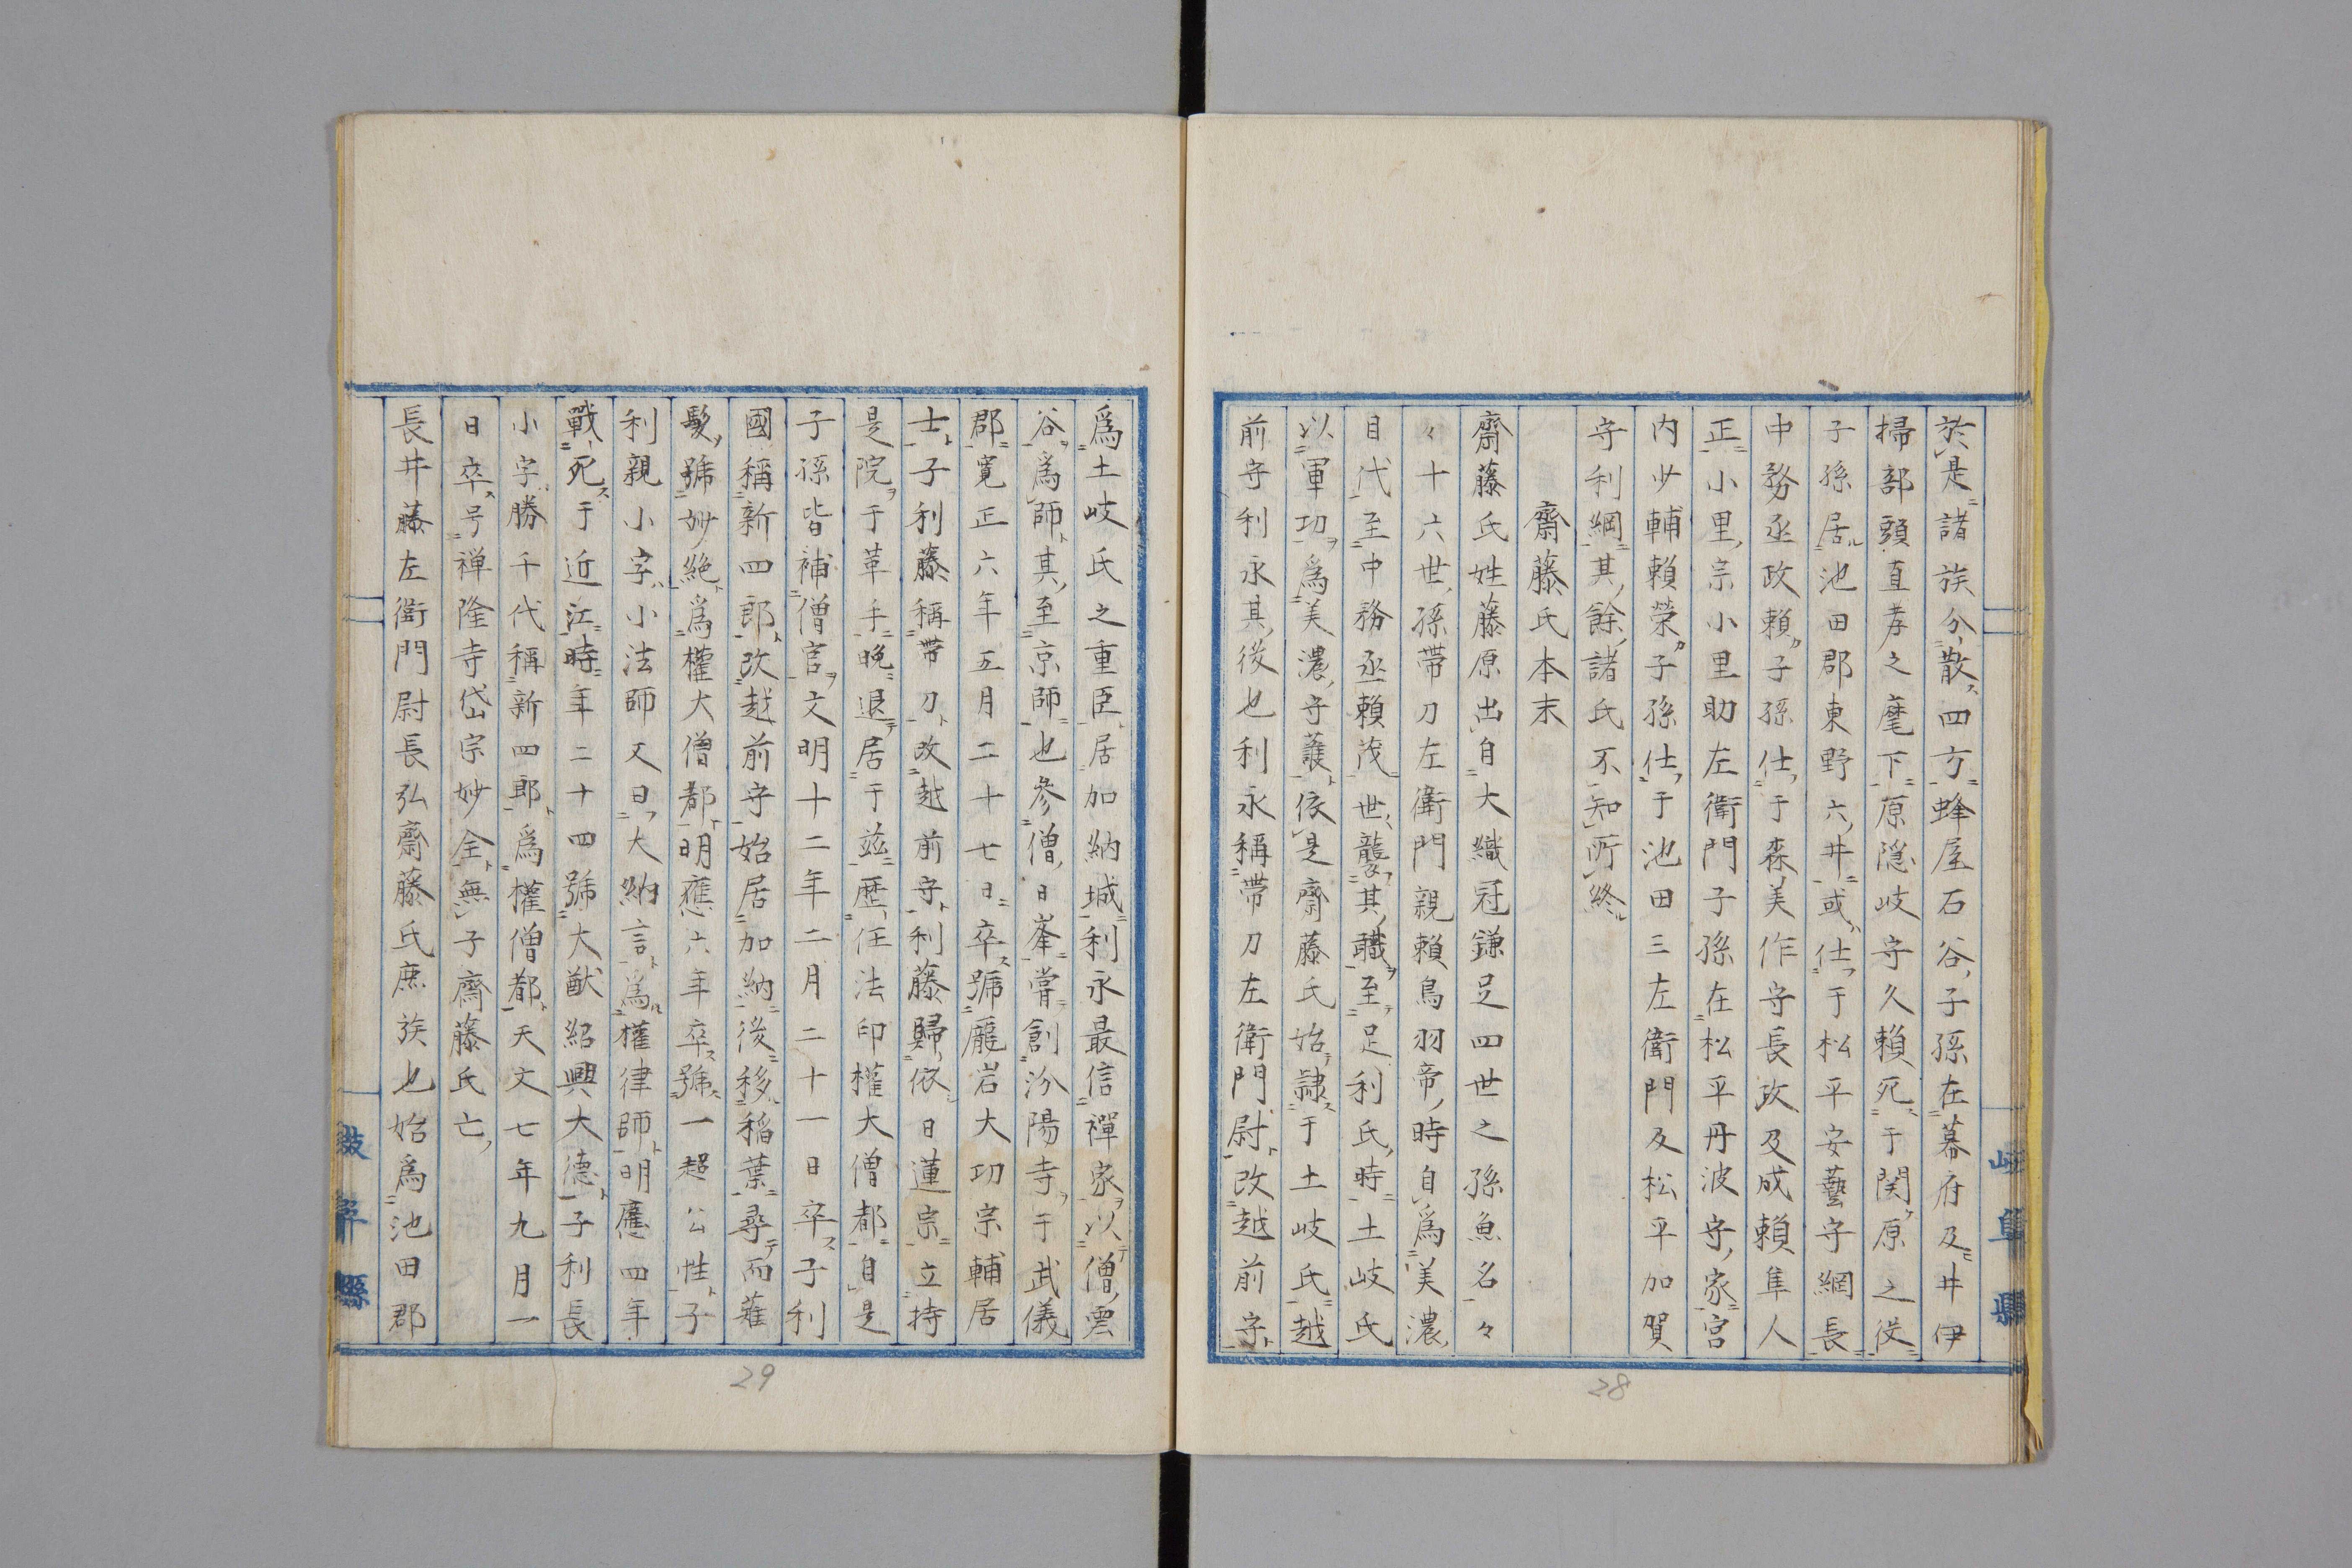 於是諸族分散四方蜂屋石谷子孫在幕府及井伊
掃部頭直孝之麾下原隠岐守久頼死于関原之役
子孫居池田郡東野六井或仕于松平安藝守綱長
中務丞政頼子孫仕于森美作守長政及成頼隼人
正小里宗小里助左衛門子孫在松平丹波守家宮
内少輔頼榮子孫仕于池田三左衛門及松平加賀
守利綱其餘諸氏不知所終
齋藤氏本末
齋藤氏姓藤原出自大織冠鎌足四世之孫魚名々
々十六世孫帯刀左衛門親頼鳥羽帝時自為美濃
目代至中務丞頼茂世襲其職至足利氏時土岐氏
以軍功為美濃守護依是齋藤氏始隷于土岐氏越
前守利永其後也利永稱帯刀左衛門尉改越前守
爲土岐氏之重臣居加納城利永最信禪家以僧雲
谷爲師其至京師也參僧日峯嘗創汾陽寺于武儀
郡寛正六年五月二十七日卒號龐岩大功宗輔居
士子利藤稱帯刀改越前守利藤歸依日蓮宗立持
是院于革手晩退居于茲歴任法印權大僧都自是
子孫皆補僧官文明十二年二月二十一日卒子利
國稱新四郎改越前守始居加納後移稲葉尋而薙
髮號妙絶爲權大僧都明應六年卒號一超公性子
利親小字小法師又曰大納言為權律師明應四年
戰死于近江時年二十四號大猷紹興大德子利長
小字勝千代稱新四郎爲權僧都天文七年九月一
日卒号禅隆寺岱宗妙全無子齋藤氏亡
長井藤左衛門尉長弘齋藤氏庶族也始爲池田郡
岐阜縣
岐阜縣
28
29